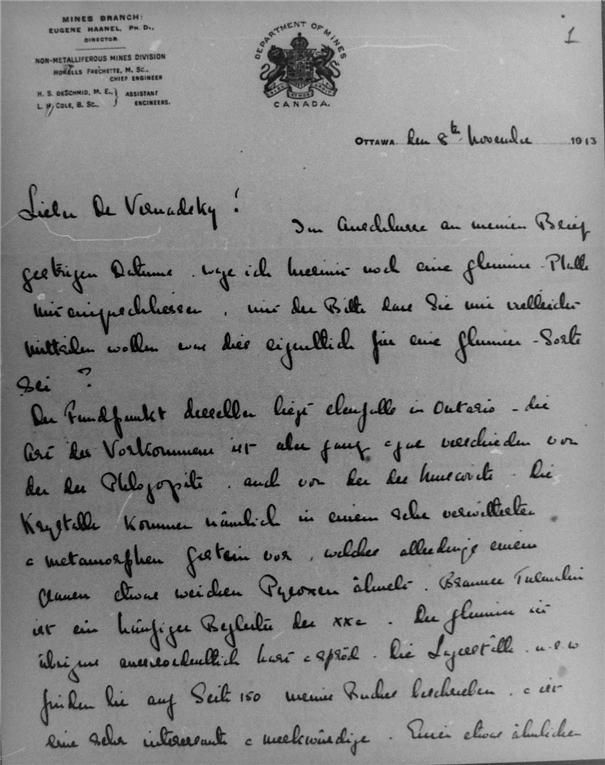 MINES BRANCH:
EUGENE HAANEL, PH. D.,
DIRECTOR
NON-METALLIFEROUS MINES DIVISION
HOWELLS FRÉCHETTE, M. SC.,
CHIEF ENGINEER
H. S. DESCHMID, M. E.,
L. H. COLE, B. SC.,
ASSISTANT
ENGINEERS.
DEPARTMENT OF MINES
CANADA.
1
OTTAWA, den 8ten November 1913
Lieber Dr Vernadsky!
Im Anschlusse an meinen Brief
gestrigen Datums, wage ich hiermit noch eine Glimmer-Platte
mit der Bitte dass Sie mir vielleicht
mitteilen wollen was dies eigentlich für eine Glimmer-Sorte
sei?
Der Fundpunkt desselben liegt ebenfalls in Ontario - die
Art des Vorkommens ist aber ganz verschieden von
der der Phlogopite, auch von der des Muscovits. Die
Krystalle kommen nämlich in einem sehr verwitterten
metamorphen Gestein vor, welches allerdings einem
etwas weichen Pyroxen ähnelt. Brauner Turmalin
ist ein häufiger Begleiter der xxe. Der Glimmer ist
übrigens ausserordentlich hart & spröd. Die Lagerstätte u.s.w
finden Sie auf Seite 150 meines Buches beschrieben, & ist
eine sehr interessante & merkwürdige. Einen etwas ähnlichen